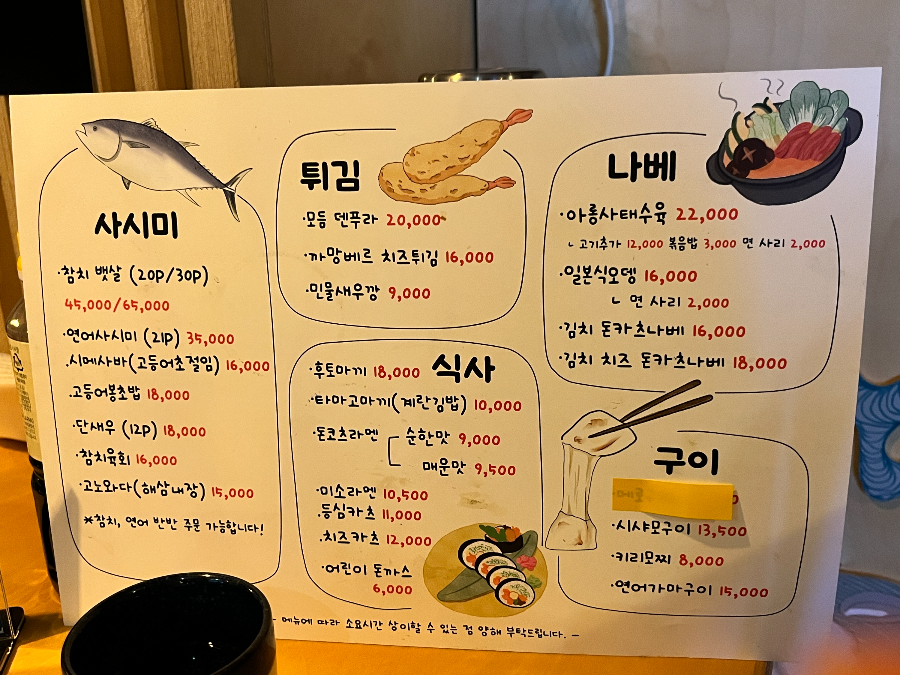 사시미
·참치 뱃살 (20P/30P)
45,000/65,000
·연어사시미 (21P) 35,000
·시메사바(고등어초절임) 16,000
·고등어봉초밥 18,000
·단새우 (12P) 18,000
·참치육회 16,000
·고노와다(해삼내장) 15,000
*참치, 연어 반반 주문 가능합니다!
튀김
·모듬 덴푸라 20,000
·까망베르 치즈튀김 16,000
·민물새우깡 9,000
식사
·후토마끼 18,000
·타마고마끼(계란김밥) 10,000
·돈코츠라멘 순한맛 9,000
매운맛 9,500
·미소라멘 10,500
·등심카츠 11,000
·치즈카츠 12,000
·어린이 돈까스
6,000
나베
·아롱사태수육 22,000
ㄴ 고기추가 12,000 볶음밥 3,000 면 사리 2,000
·일본식오뎅 16,000
ㄴ 면 사리 2,000
·김치 돈카츠나베 16,000
·김치 치즈 돈카츠나베 18,000
구이
·메로
·시샤모구이 13,500
·키리모찌 8,000
·연어가마구이 15,000
- 메뉴에 따라 소요시간 상이할 수 있는 점 양해 부탁드립니다. -